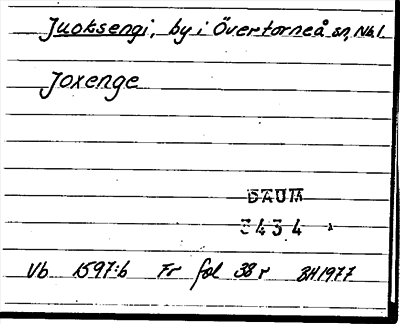 Juoksengi, by i Övertorneå sn, Nb l.
Joxenge
DAUM
3434
Vb 1597:6 Fr fol 38 r BH 1977